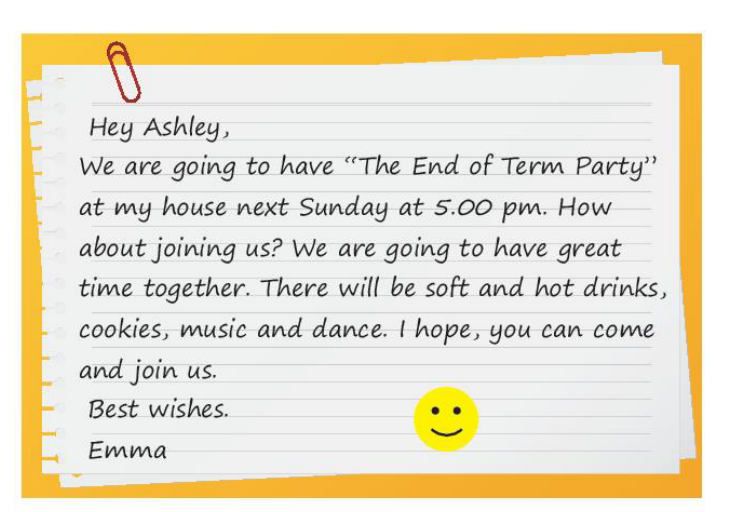 Hey Ashley,
We are going to have “The End of Term Party”
at my house next Sunday at 5.00 pm. How
about joining us? We are going to have great
time together. There will be soft and hot drinks,
cookies, music and dance. I hope, you can come
and join us.
Best wishes.
Emma